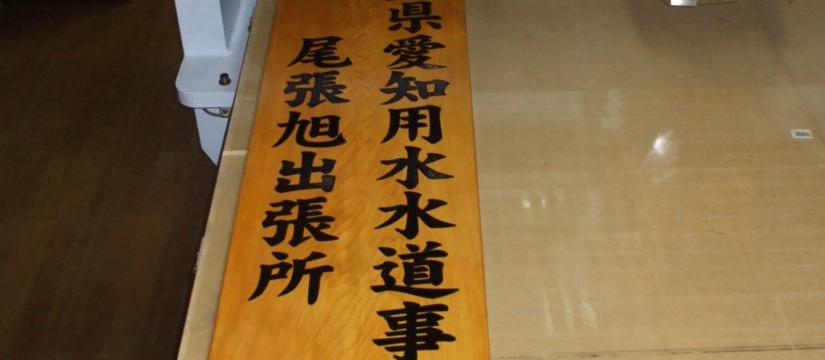 県愛知用水水道事
尾張旭出張所